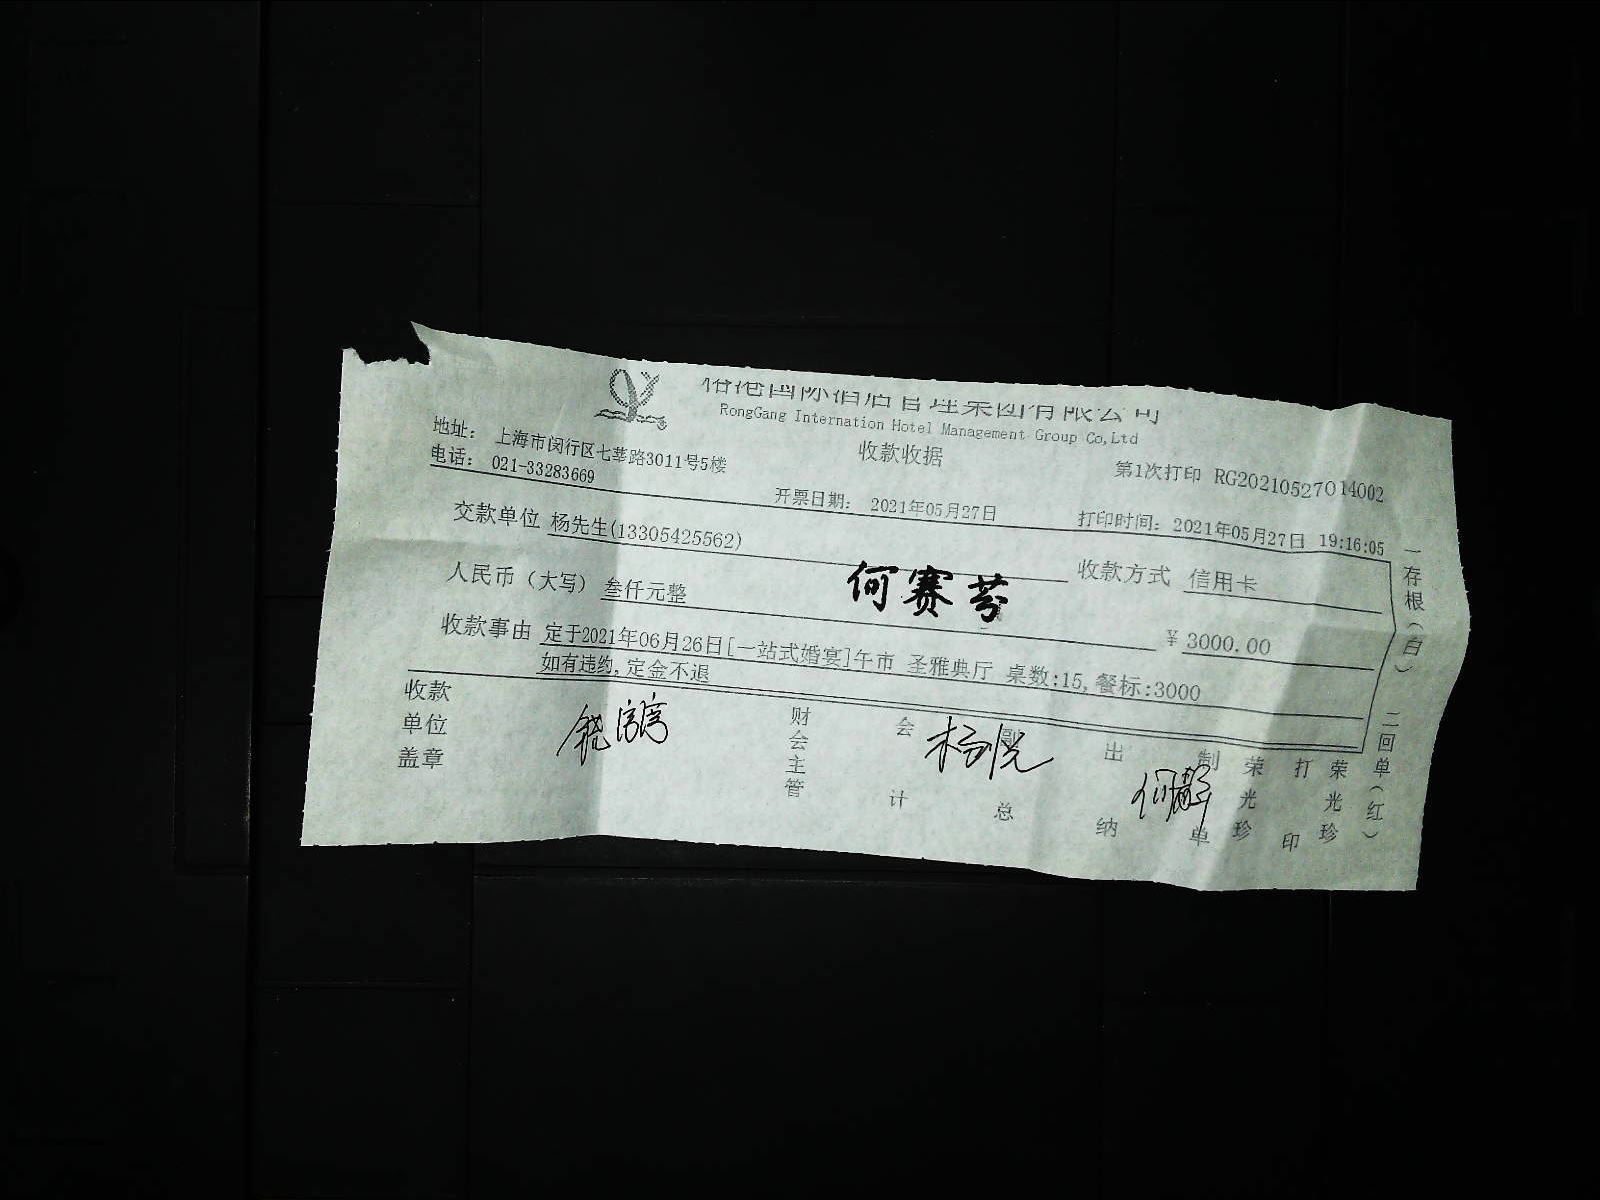 港国际酒店管理集团有限公司
RongGang Internation Hotel Management Group Co,Ltd
收款收据
地址: 上海市闵行区七莘路3011号5楼
电话: 021-33283669
第1次打印 RG20210527014002
开票日期: 2021年05月27日
打印时间: 2021年05月27日 19:16:05
交款单位 杨先生(13305425562)
收款方式 信用卡
人民币（大写）叁仟元整
何赛芬
¥3000.00
收款事由 定于2021年06月26日[一站式婚宴]午市 圣雅典厅 桌数:15,餐标:3000
如有违约,定金不退
收款单位盖章
财会主管
会计
副总
出纳
何静
制单
荣光珍
打印
荣光珍
一存根（白）
二回单（红）